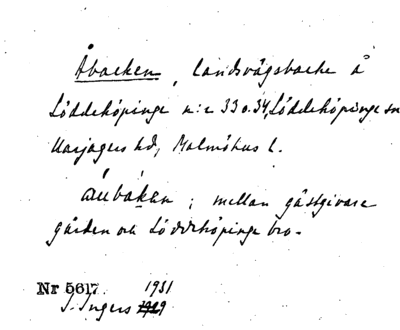 Åbacken, landsvägsbacke å
Löddeköpinge n:r 33 o. 34, Löddeköpinge sn
Harjagers hd, Malmöhus l.
åubakan; mellan gästgivare
gården och Löddeköpinge bro.
Nr 5617. 1931
I. Ingers 1929